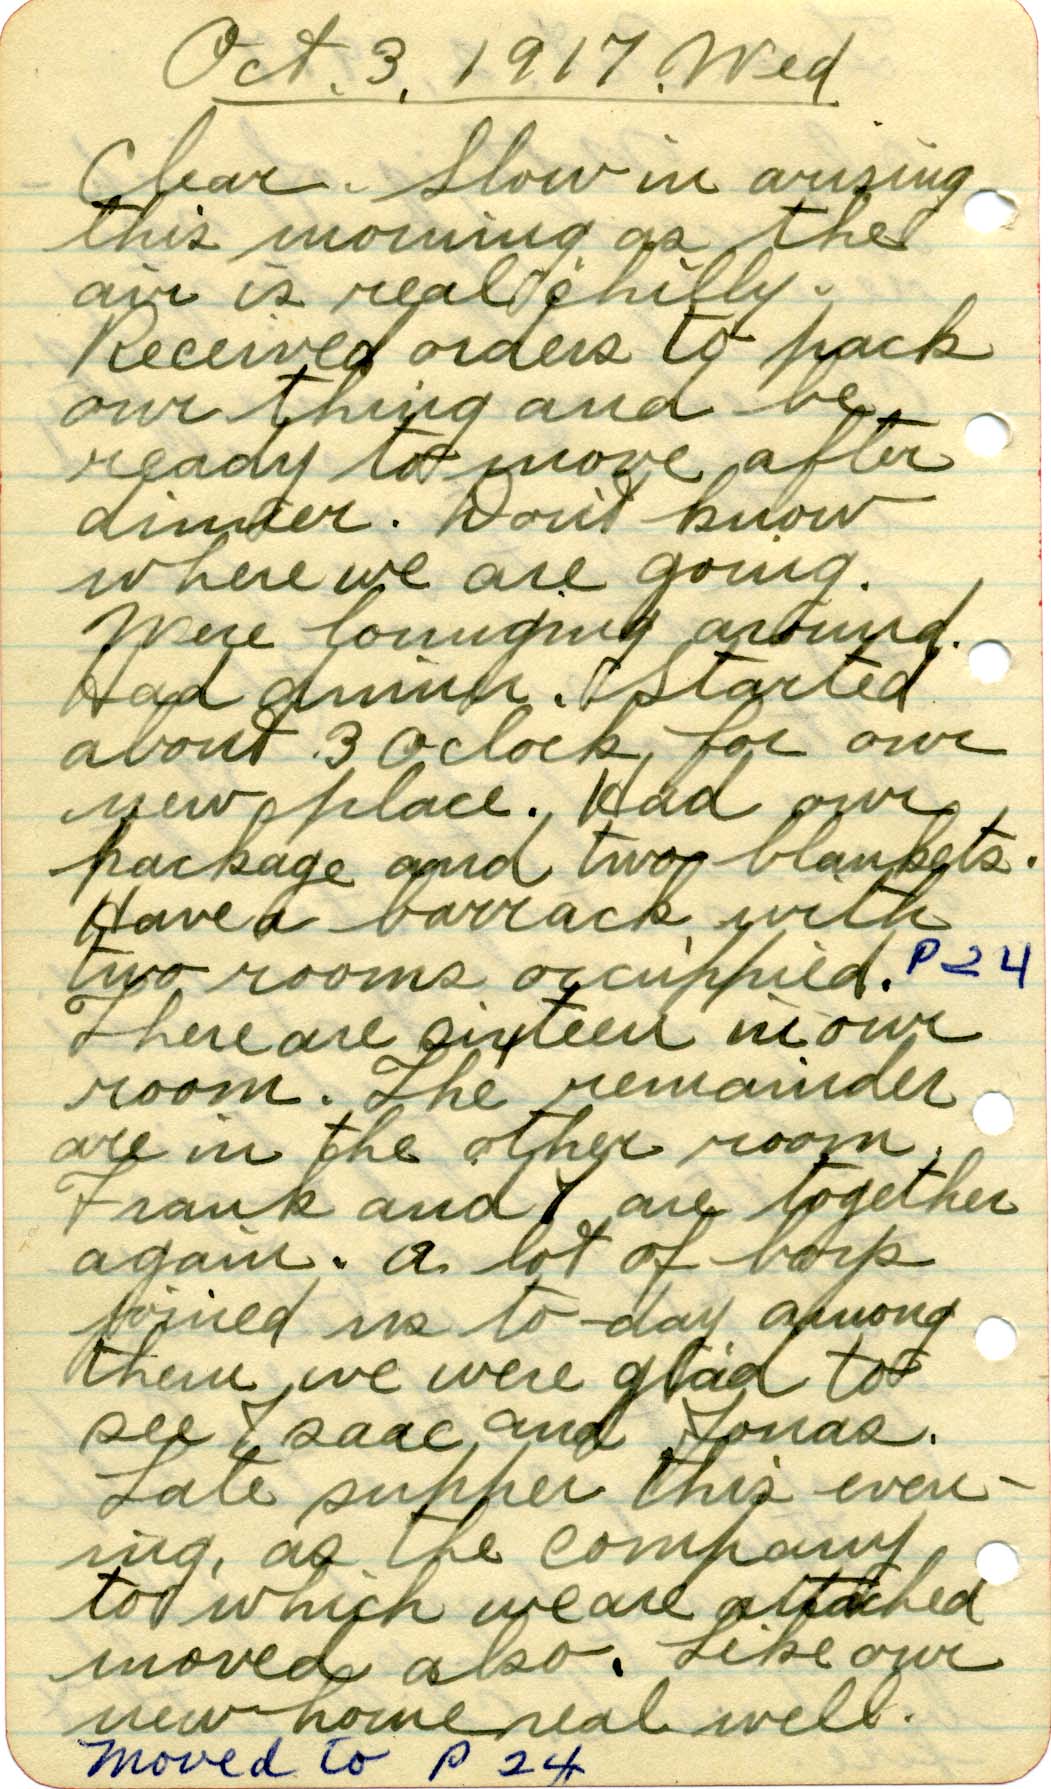 Oct. 3, 1917. Wed
Clear. Slow in arising
this morning as the
air is real chilly.
Received orders to pack
our thing and be
ready to move after
dinner. Don't know
where we are going.
Were lounging around.
Had dinner. Started
about 3 Oclock for our
new place. Had our
package and two blankets.
Have a barrack with
two rooms occuppied. P 24
There are sixteen in our
room. The remainder
are in the other room.
Frank and I are together
again. A lot of boys
joined us to-day among
them we were glad to
see Isaac and Jonas.
Late supper this even-
ing, as the company
to which we are attached
moved also. Like our
new home real well.
Moved to P 24